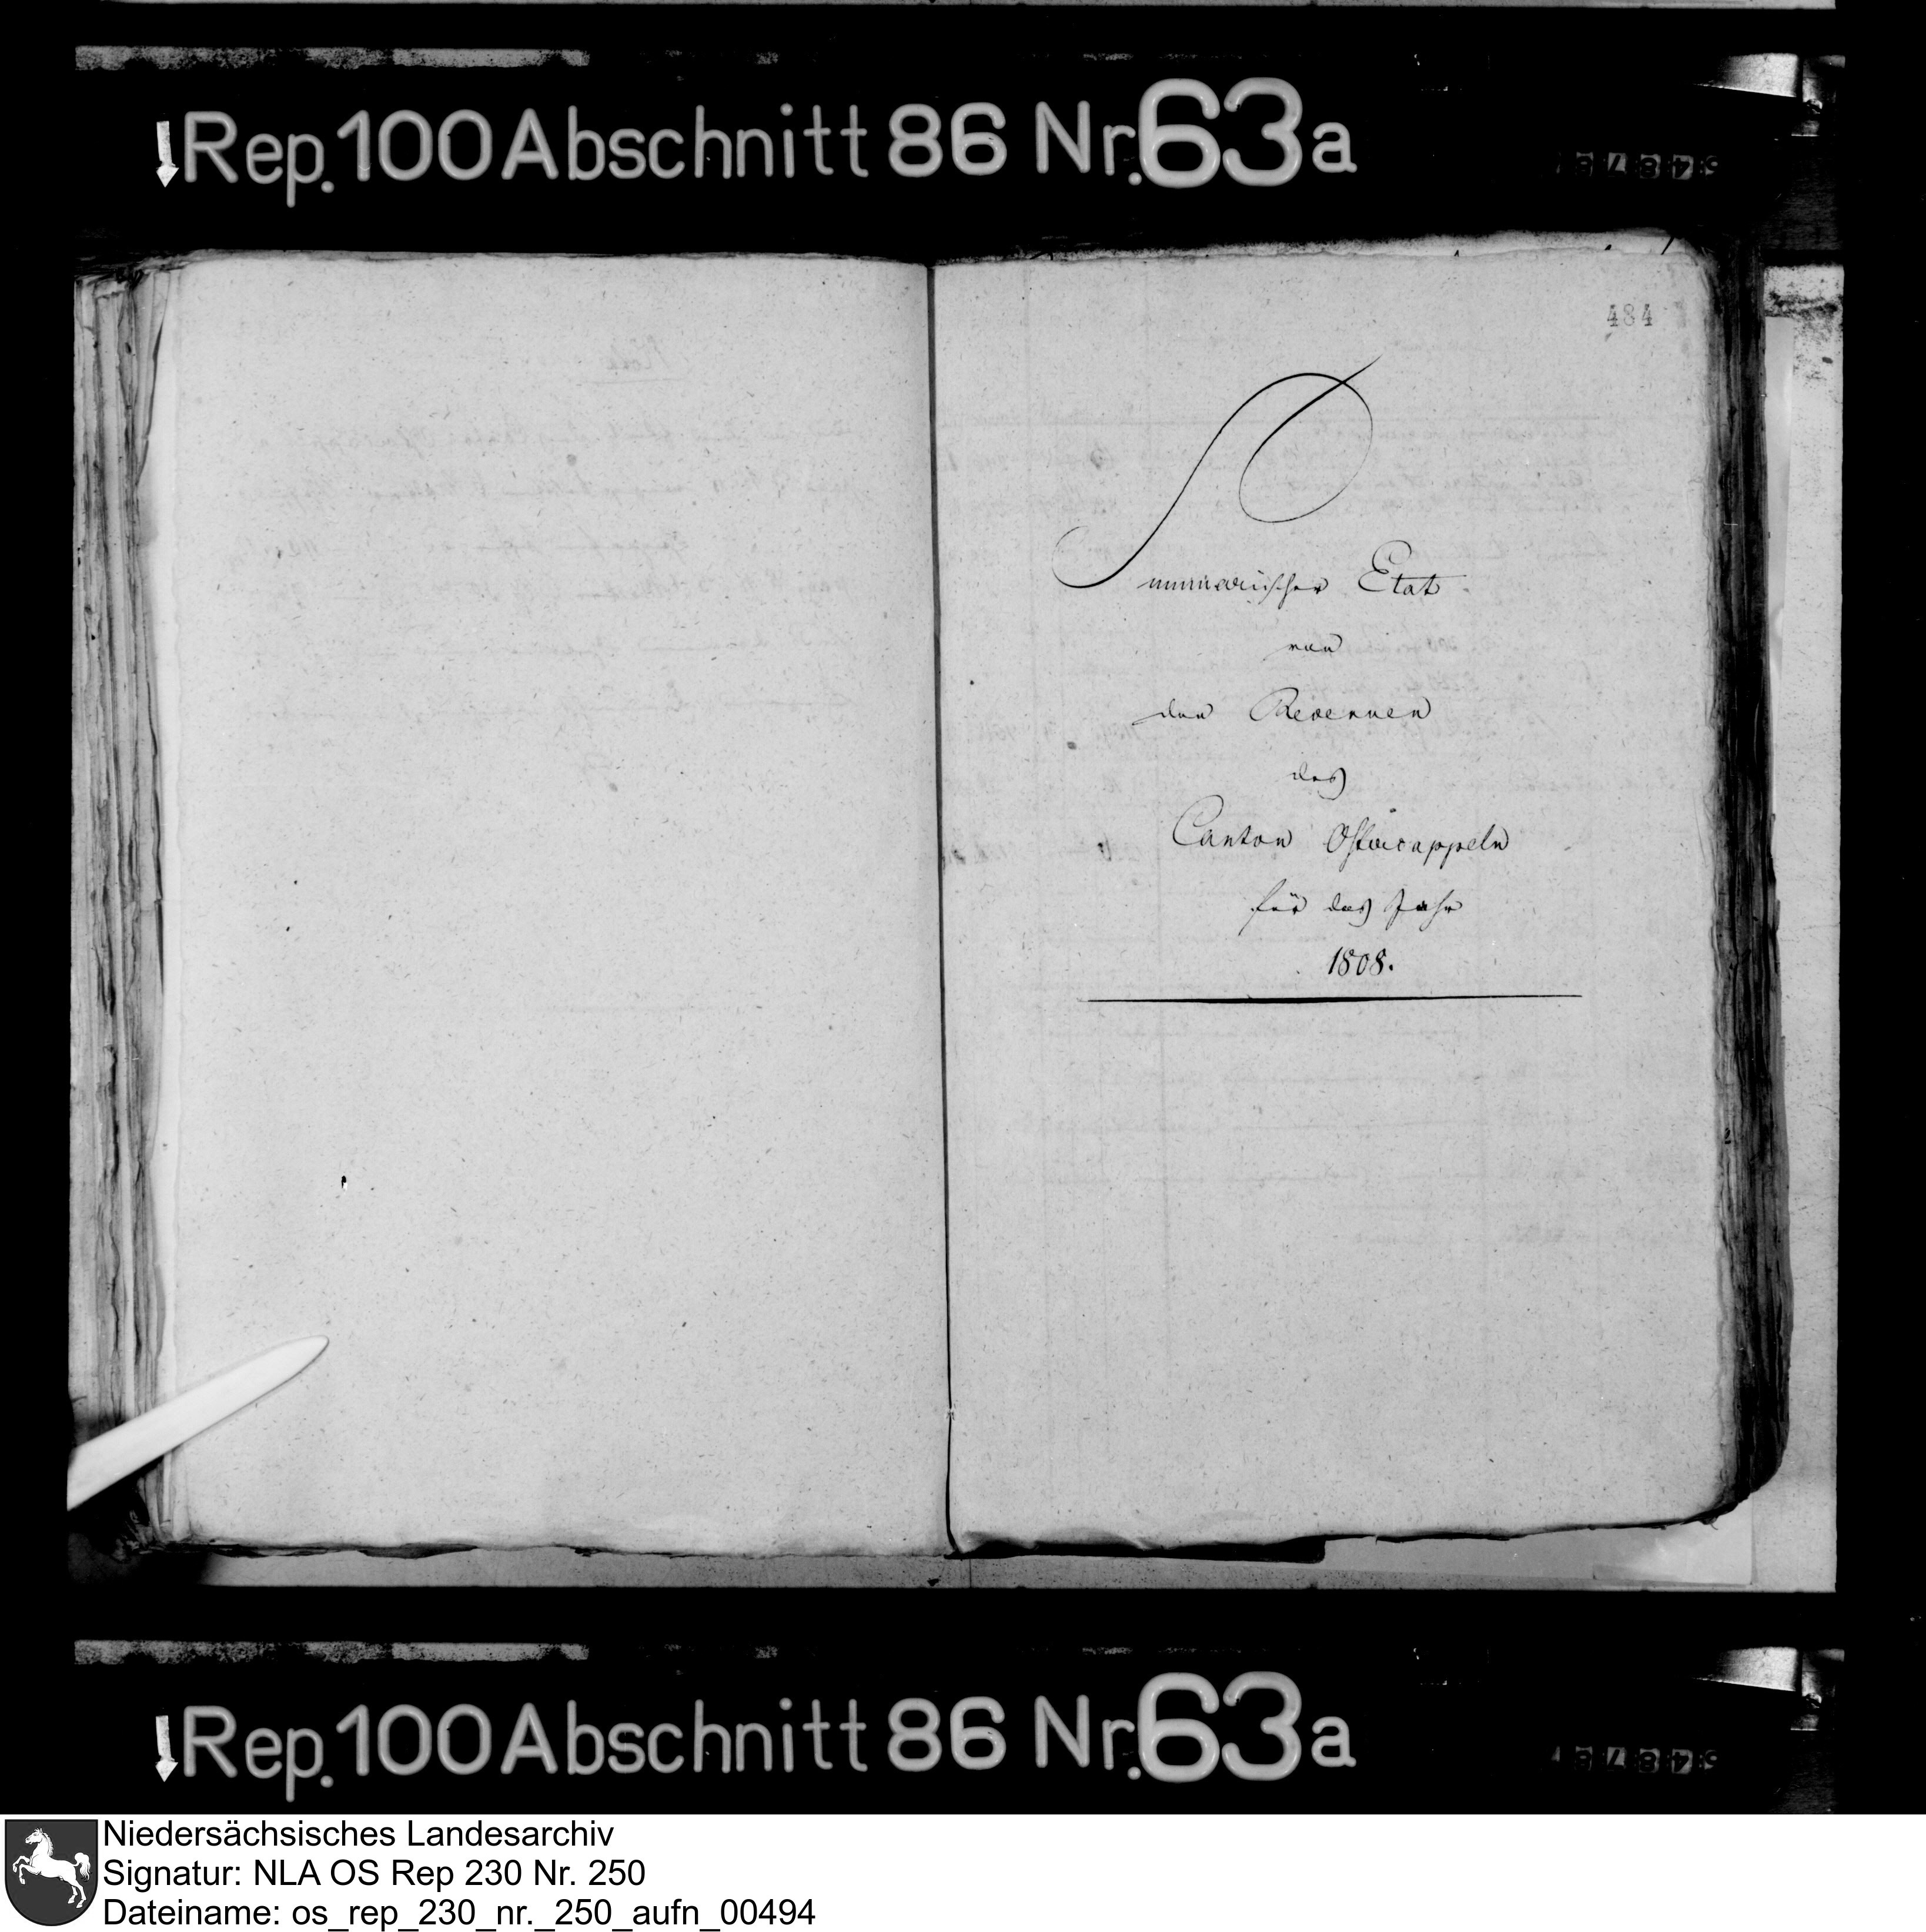 Rep. 100 Abschnitt 86 Nr. 63a
484
Summarischer Etat
von
den Revenuen
des
Canton Ostercappeln
für das Jahr
1808.
Rep. 100 Abschnitt 86 Nr. 63a
Niedersächsisches Landesarchiv
Signatur: NLA OS Rep 230 Nr. 250
Dateiname: os_rep_230_nr._250_aufn_00494